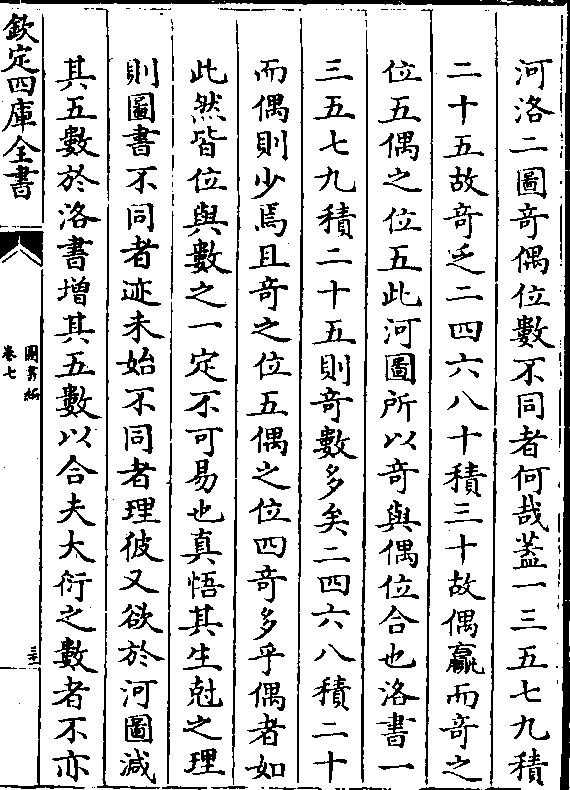 河洛二圖竒偶位數不同者何哉蓋一三五七九積
二十五故竒乏二四六八十積三十故偶贏而竒之
位五偶之位五此河圖所以竒與偶位合也洛書一
三五七九積二十五則竒數多矣二四六八積二十
而偶則少焉且竒之位五偶之位四竒多乎偶者如
此然皆位與數之一定不可易也真悟其生尅之理
則圖書不同者迹未始不同者理彼又欲於河圖減
其五數於洛書增其五數以合夫大衍之數者不亦
欽定四庫全書
圖書編
卷七